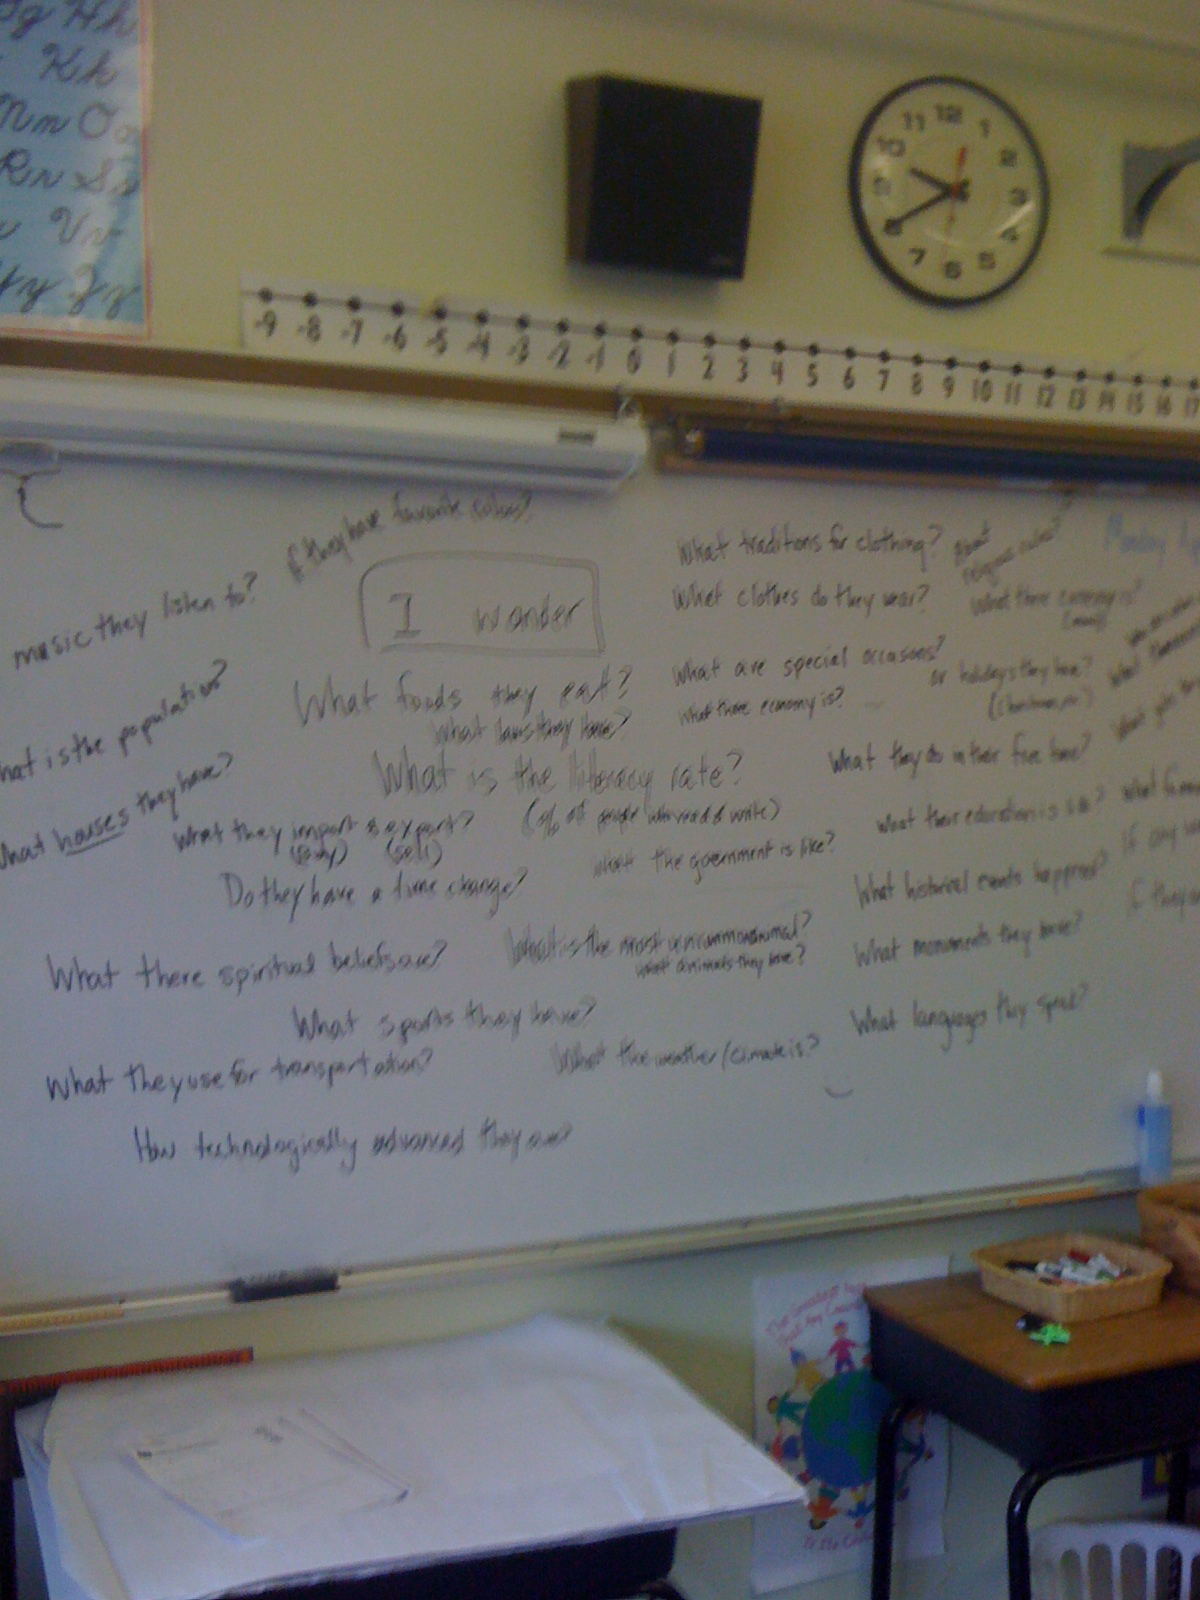 Hh
Kk
Mn O
Rr S
V
Yy Zz
12
11 1
10 2
9 3
8 4
7 6 5
-9 -8 -7 -6 -5 -4 -3 -2 -1 0 1 2 3 4 5 6 7 8 9 10 11 12 13 14 15 16 17
If they have favorite colors?
I wonder
music they listen to?
What traditions for clothing?
about religious rules?
Monday
What clothes do they wear?
What there economy is?
(money)
What foods they eat?
What are special occasons?
or holidays they have?
What laws they have?
What there economy is?
(Christmas,
hat is the population?
What is the literacy rate?
(% of people who read & write)
What they do in their free time?
What houses they have?
What they import & export?
(buy) (sell)
What the government is like?
What their education is like?
If any
Do they have a time change?
What historical events happened?
If they
What there spiritual beliefs are?
What is the most uncommon animal?
What animals they have?
What monuments they have?
What sports they have?
What languages they speak?
What they use for transportation?
What the weather/climate is?
How technologically advanced they are?
The Greatest